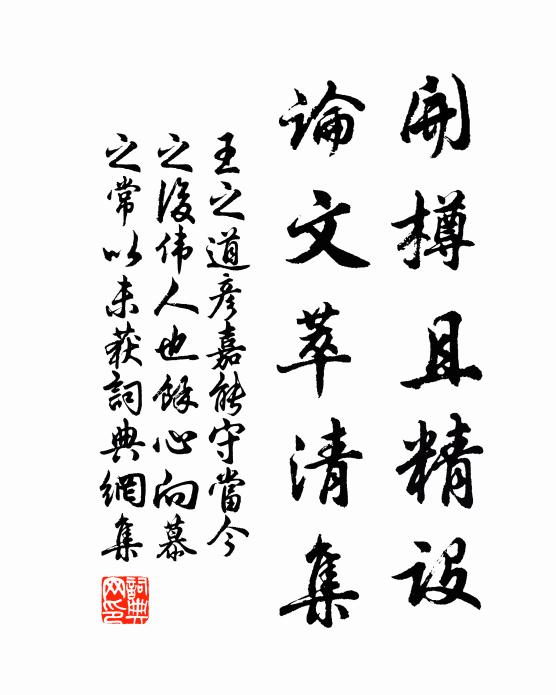 開樽且精設
論文萃清集
王之道彦嘉能守當今
之後伟人也餘心向慕
之常以未获詞典網集
詞典网印